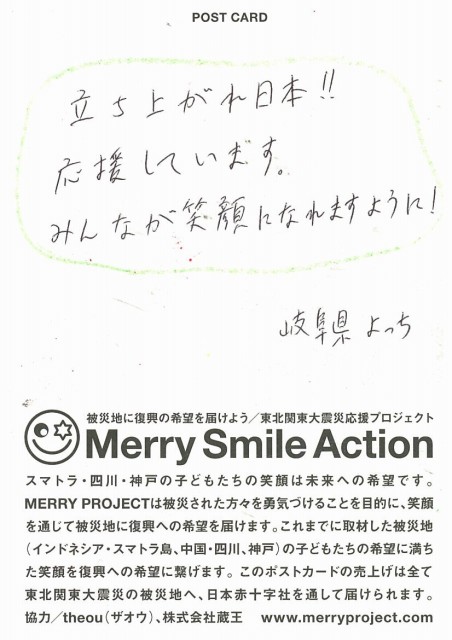 POST CARD
立ち上がれ日本!!
応援しています。
みんなが笑顔になれますように!
岐阜県 よっち
被災地に復興の希望を届けよう/東北関東大震災応援プロジェクト
Merry Smile Action
スマトラ・四川・神戸の子どもたちの笑顔は未来への希望です。
MERRY PROJECTは被災された方々を勇気づけることを目的に、笑顔
を通じて被災地に復興への希望を届けます。これまでに取材した被災地
(インドネシア・スマトラ島、中国・四川、神戸)の子どもたちの希望に満ち
た笑顔を復興への希望に繋げます。このポストカードの売上げは全て
東北関東大震災の被災地へ、日本赤十字社を通して届けられます。
協力/theou(ザオウ)、株式会社蔵王 www.merryproject.com